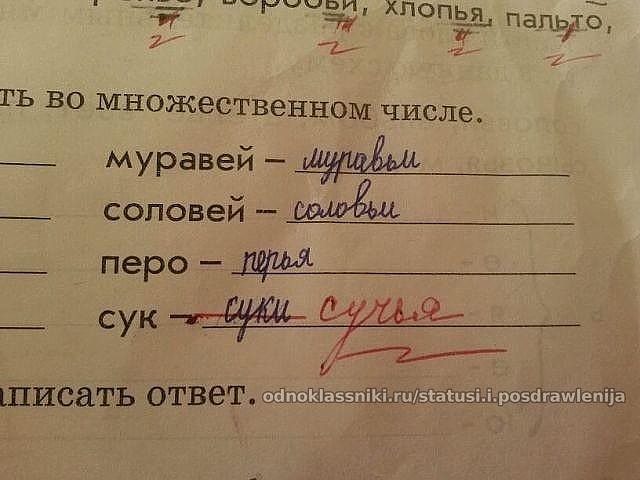 воробьи, хлопья, пальто,
ть во множественном числе.
муравей – муравьи
соловей – соловьи
перо – перья
сук – суки сучья
аписать ответ. odnoklassniki.ru/statusi.i.posdrawlenija